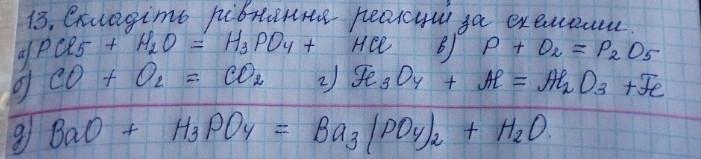 13. Складіть рівняння реакцій за схемами.
а) PCl5 + H2O = H3PO4 + HCl в) P + O2 = P2O5
б) CO + O2 = CO2 г) Fe3O4 + Al = Al2O3 + Fe
д) BaO + H3PO4 = Ba3(PO4)2 + H2O.